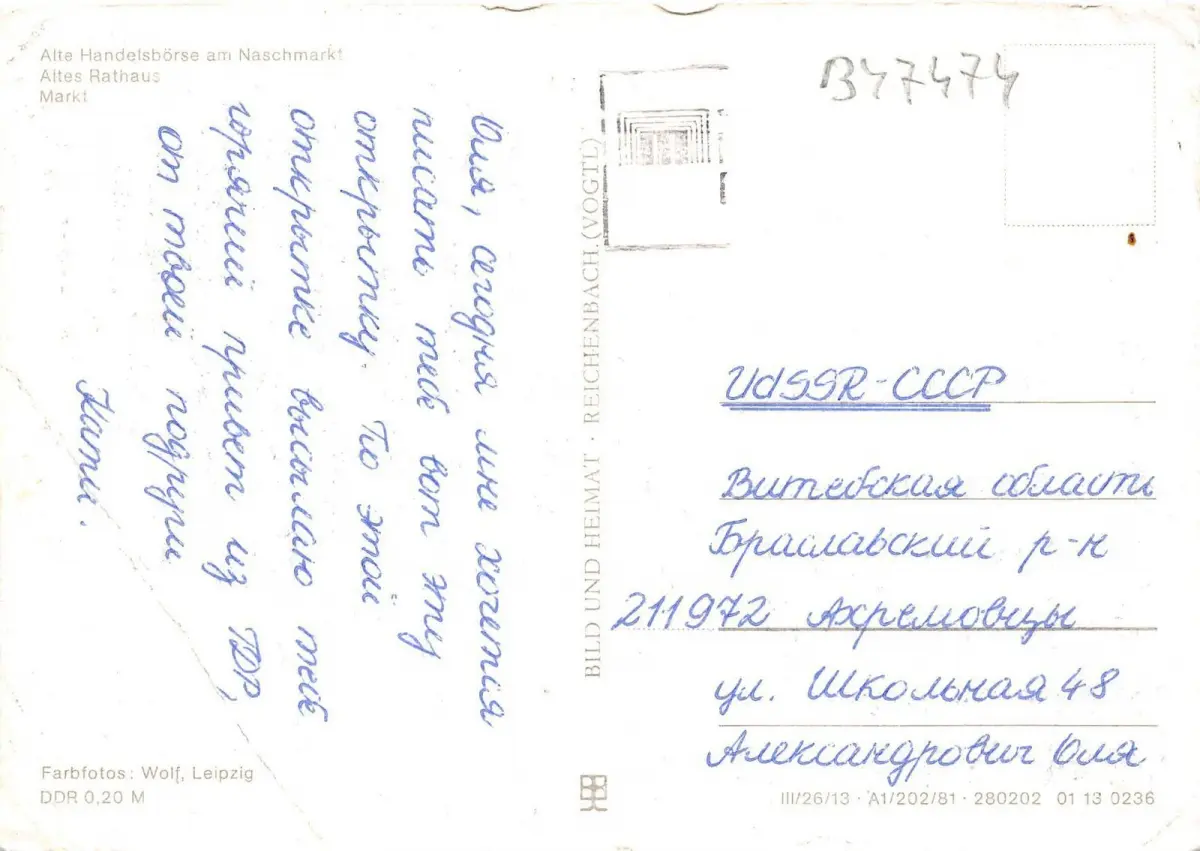 Alte Handelsbörse am Naschmarkt
Altes Rathaus
Markt
Оля, сегодня мне хочется
писать тебе вот эту
открытку. По этой
открытке высылаю тебе
горячий привет из ГДР,
от твоей подруги
Кати.
Farbfotos: Wolf, Leipzig
DDR 0,20 M
BILD UND HEIMAT · REICHENBACH (VOGTL)
B47474
UdSSR-CCCP
Витебская область
Браславский р-н
211972 Ахремовцы
ул. Школьная 48
Александрович Оля
III/26/13 · A1/202/81 · 280202 01 13 0236